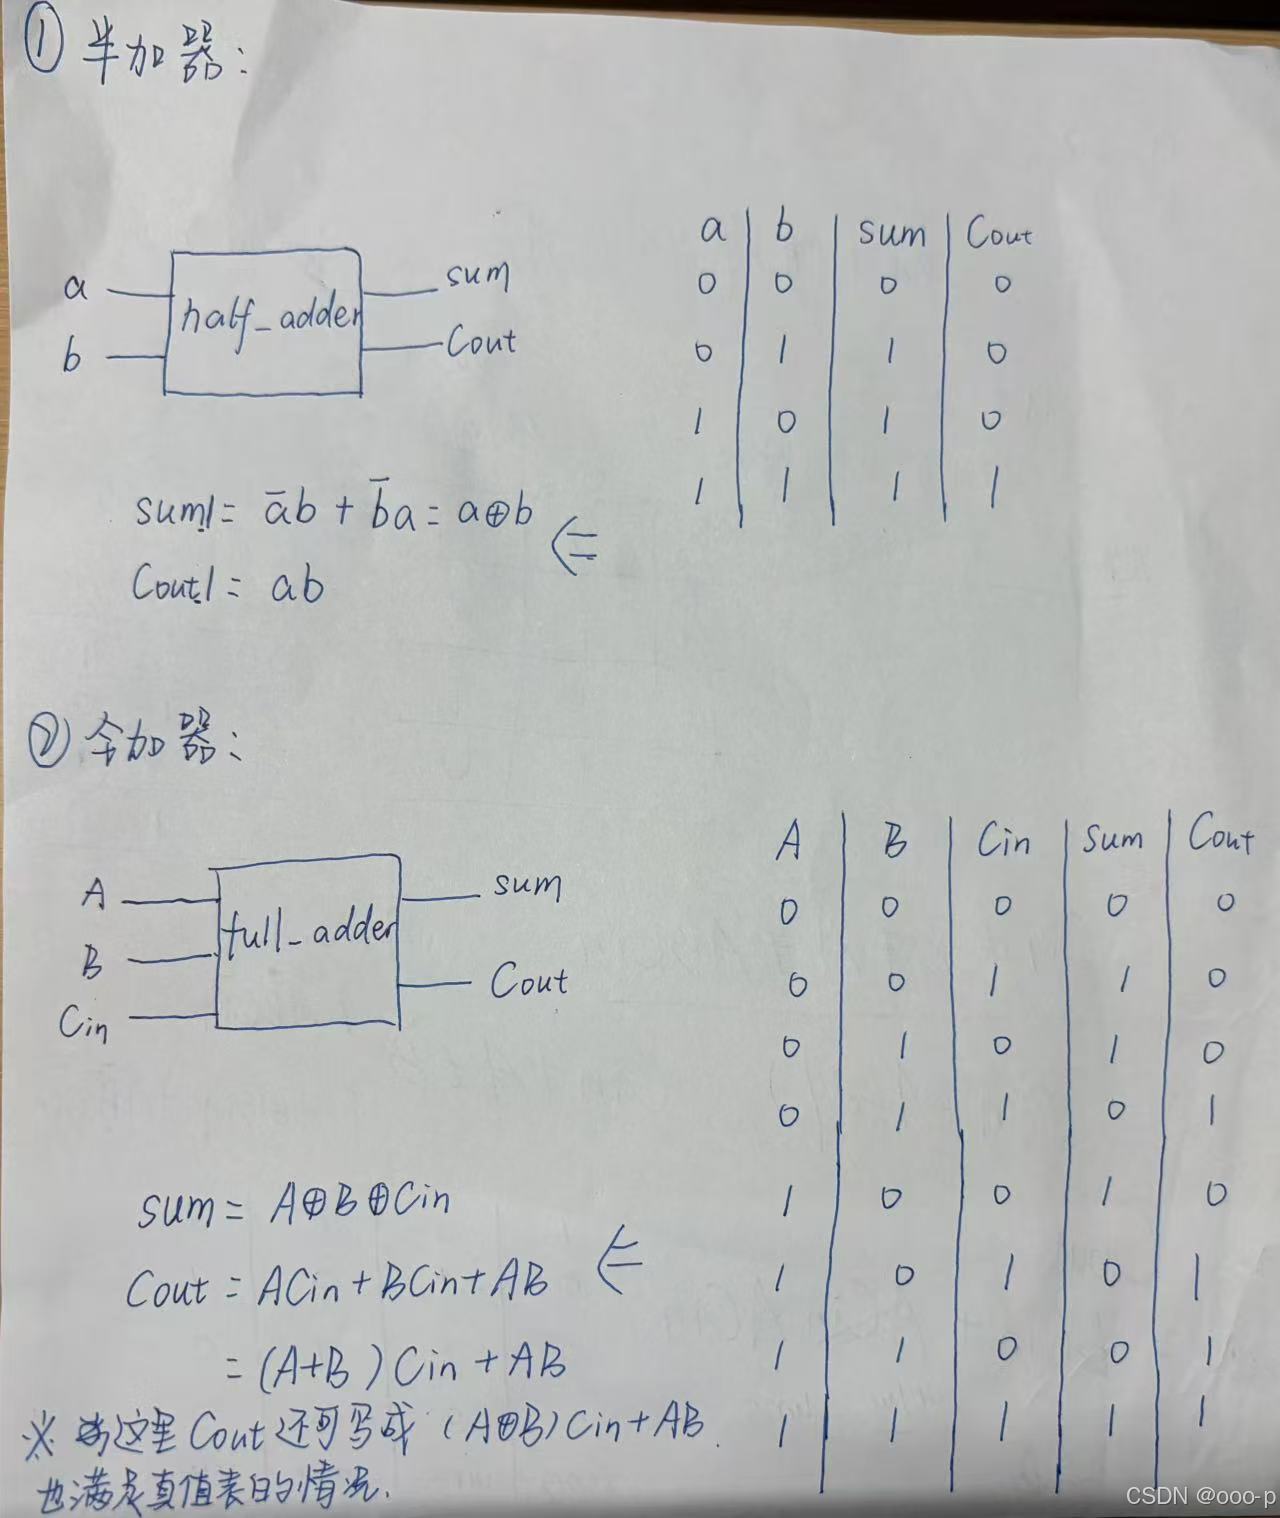 ① 半加器:
a b sum Cout
0 0 0 0
0 1 1 0
1 0 1 0
1 1 1 1
a
b
half_adder
sum
Cout
sum1= a̅b + b̅a = a⊕b ⇐
Cout1= ab
② 全加器:
A B Cin sum Cout
0 0 0 0 0
0 0 1 1 0
0 1 0 1 0
0 1 1 0 1
1 0 0 1 0
1 0 1 0 1
1 1 0 0 1
1 1 1 1 1
A
B
Cin
full_adder
sum
Cout
sum = A⊕B⊕Cin
Cout = ACin+BCin+AB ⇐
=(A+B)Cin+AB
※ 这里Cout还可写成 (A⊕B)Cin+AB.
也满足真值表的情况.
CSDN @ooo-p